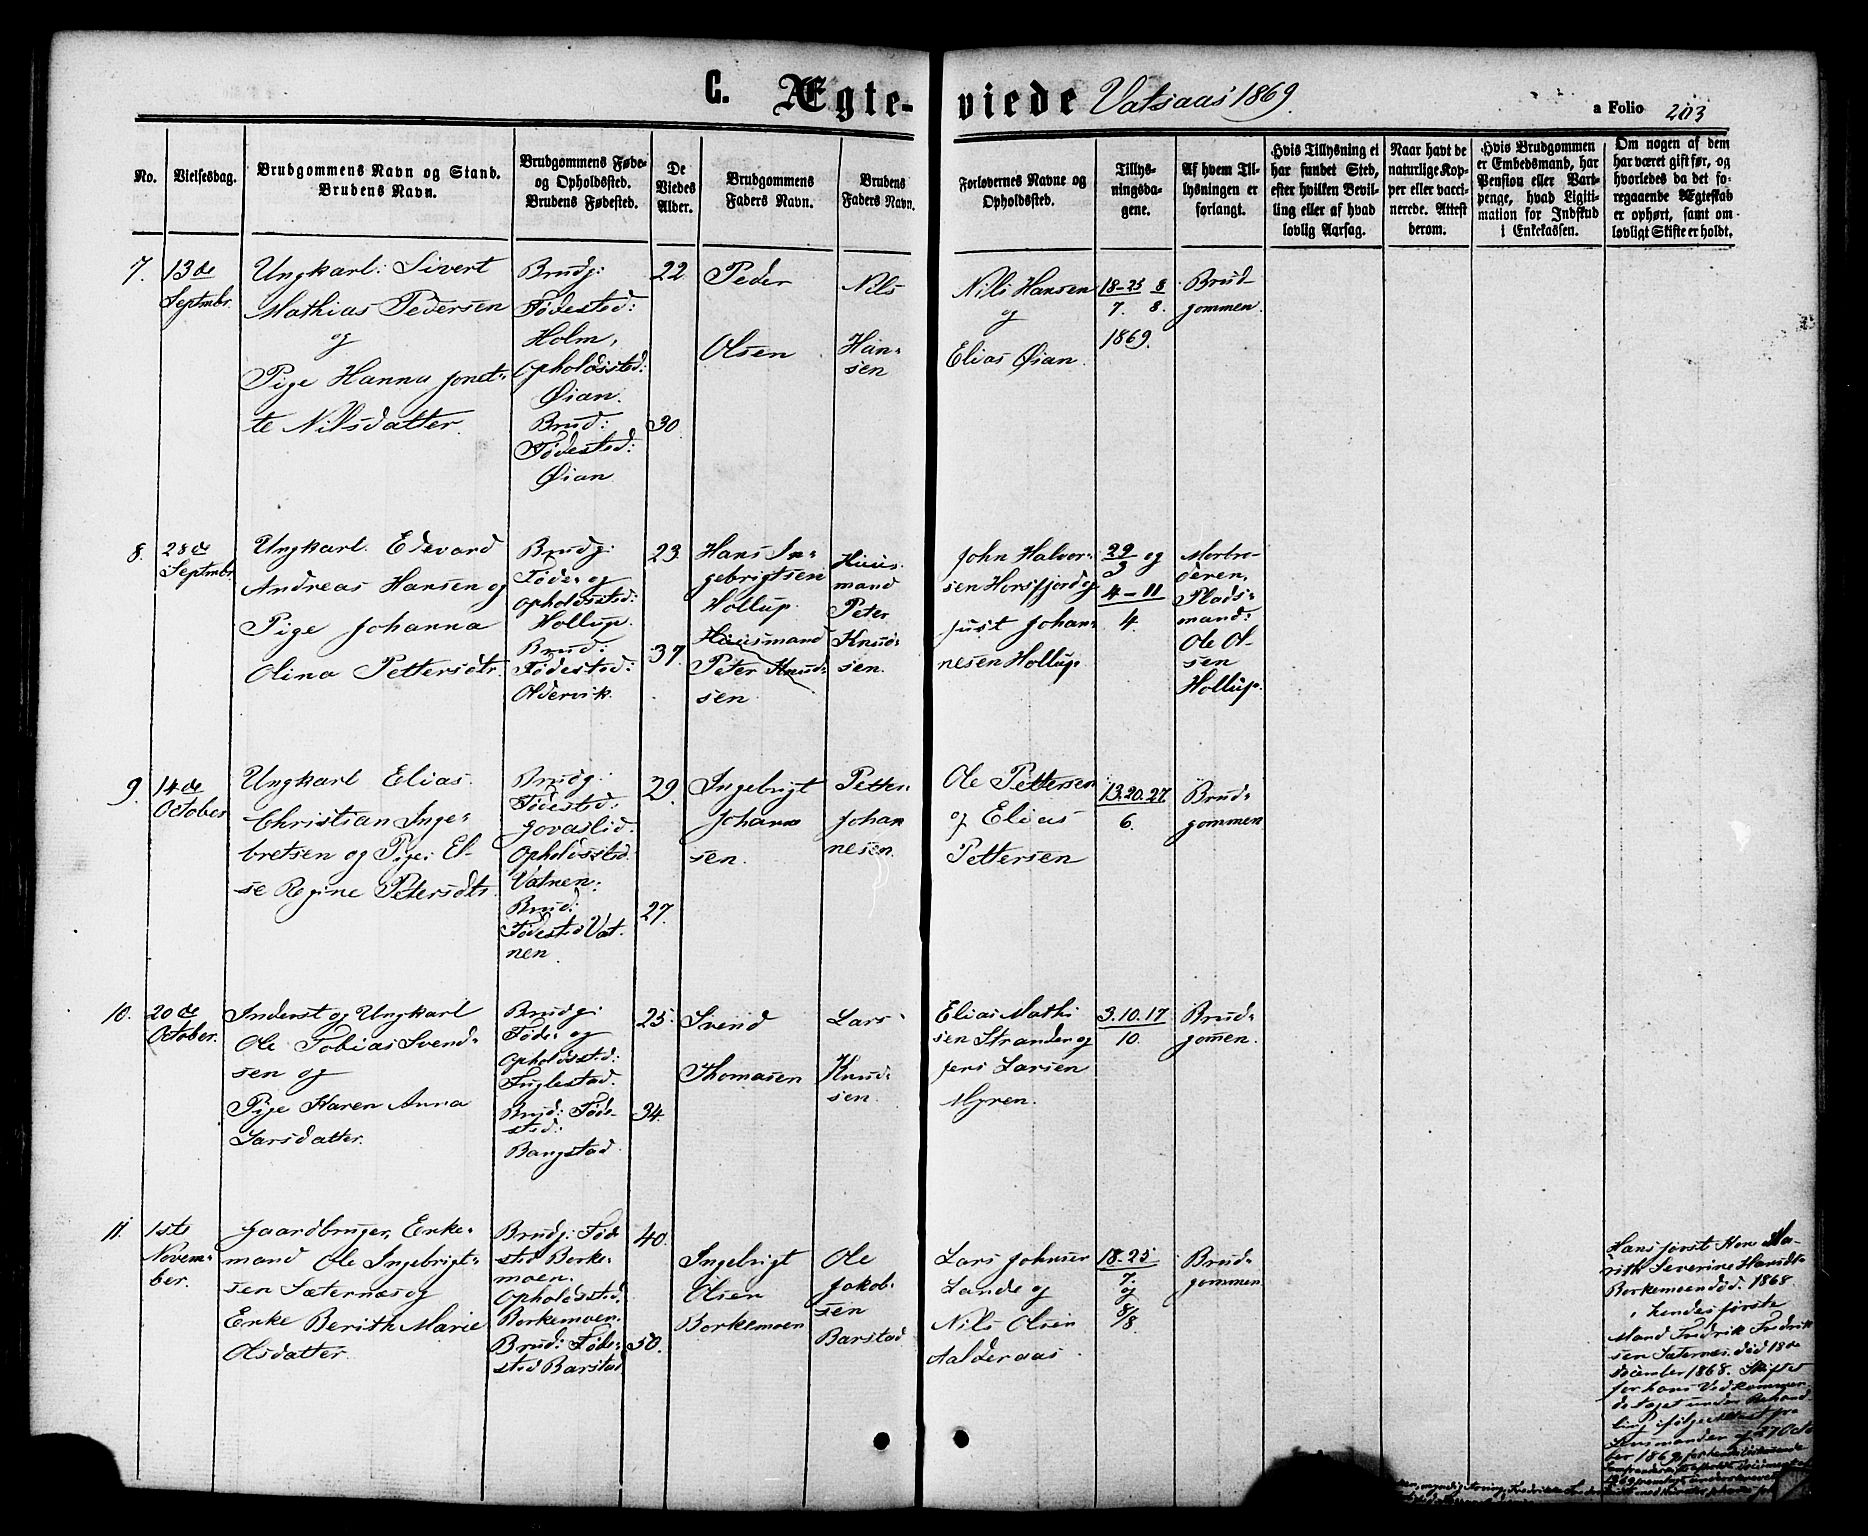 C. Ægte- viede Vatsaas 1869.
a Folio 203
No.
Vielsesdag.
Brudgommens Navn og Stand.
Brudens Navn.
Brudgommens Føde-
og Opholdssted.
Brudens Fødested.
De
Viedes
Alder.
Brudgommens
Faders Navn.
Brudens
Faders Navn.
Forlovernes Navne og
Opholdssted.
Tillys-
ningsda-
gene.
Af hvem Til-
lysningen er
forlangt.
Hvis Tillysning ei
har fundet Sted,
efter hvilken Bevil-
ling eller af hvad
lovlig Aarsag.
Naar havt de
naturlige Kop-
per eller vacci-
nerede. Attest
derom.
Hvis Brudgommen
er Embedsmand, har
Pension eller Vart-
penge, hvad Legiti-
mation for Indskud
i Enkekassen.
Om nogen af dem
har været gift før, og
hvorledes da det fo-
regaaende Ægteskab
er ophørt, samt om
lovligt Skifte er holdt.
7.
13de
Septmbr.
Ungkarl: Sivert
Mathias Pedersen
og
Pige Hanna Jonet-
te Nilsdatter.
Brudg:
Fødested:
Holm,
Opholdssted:
Øian.
Brud:
Fødested:
Øian
22
30.
Peder
Olsen
Nils
Han-
sen
Nils Hansen
og
Elias Øian.
18-25 8
7. 8.
1869.
Brud-
gommen.
8.
28de
Septmbr
Ungkarl. Edevard
Andreas Hansen og
Pige Johanna
Olina Pettersdtr.
Brudg:
Føde- og
Opholdssted:
Hollup.
Brud:
Fødested:
Oldervik.
23.
37.
Hans In-
gebrigtsen
Hollup.
Huusmand
Peter Knud-
sen
Huus-
mand
Peter
Knud-
sen.
John Halvor-
sen Horsfjord og
Just Johan-
nesen Hollup
29 og
3
4-11
4.
Morbro-
deren,
Plads-
mand:
Ole Ol-
sen
Hollup.
9.
14de
October
Ungkarl Elias
Christian Inge-
bretsen og Pige: El-
se Regine Petersdtr.
Brudg:
Fødested:
Jovaslid.
Opholdssted
Vatnen:
Brud:
Fødested Vat-
nen.
29.
27.
Ingebrigt
Johan-
sen.
Petter
Johan
nesen.
Ole Pettersen
og Elias
Pettersen
13.20.27.
6.
Brud-
gommen
10.
20de
October.
Inderst og Ungkarl
Ole Tobias Svend-
sen og
Pige Karen Anna
Larsdatter.
Brudg:
Føde- og
Opholdssted:
Fuglestad.
Brud: Føde-
sted:
Bangstad
25.
34.
Svend
Thomasen
Lars
Knud-
sen.
Elias Mathi
sen Strander og
Jens Larsen
Myren.
3.10.17
10.
Brud-
gommen.
11.
1ste
Novem-
ber.
Gaardbruger, Enke-
mand Ole Ingebrigt-
sen Sæternæs og
Enke Berith Marie
Olsdatter.
Brudg: Føde
sted Borke-
moen.
Opholdssted.
Borkemoen.
Brud: Føde-
sted Barstad
40.
50.
Ingebrigt
Olsen
Borkemoen
Ole
Jakob-
sen
Barstad
Lars Johnsen
Lande og
Nils Olsen
Aalderaas.
18.25
7.
og
8/8
Brud-
gommen
Hans først Kone Ma-
rith Severine Hansdtr.
Borkemoen død. 1868
, hendes første
Mand Fredrik Fredrik
sen Sæternes. død 18de
December 1868. Skiftet
for hans Vedkommen-
de taget under Behand-
ling ifølge Attest fra
Lensmanden af 27 Octo
ber 1869